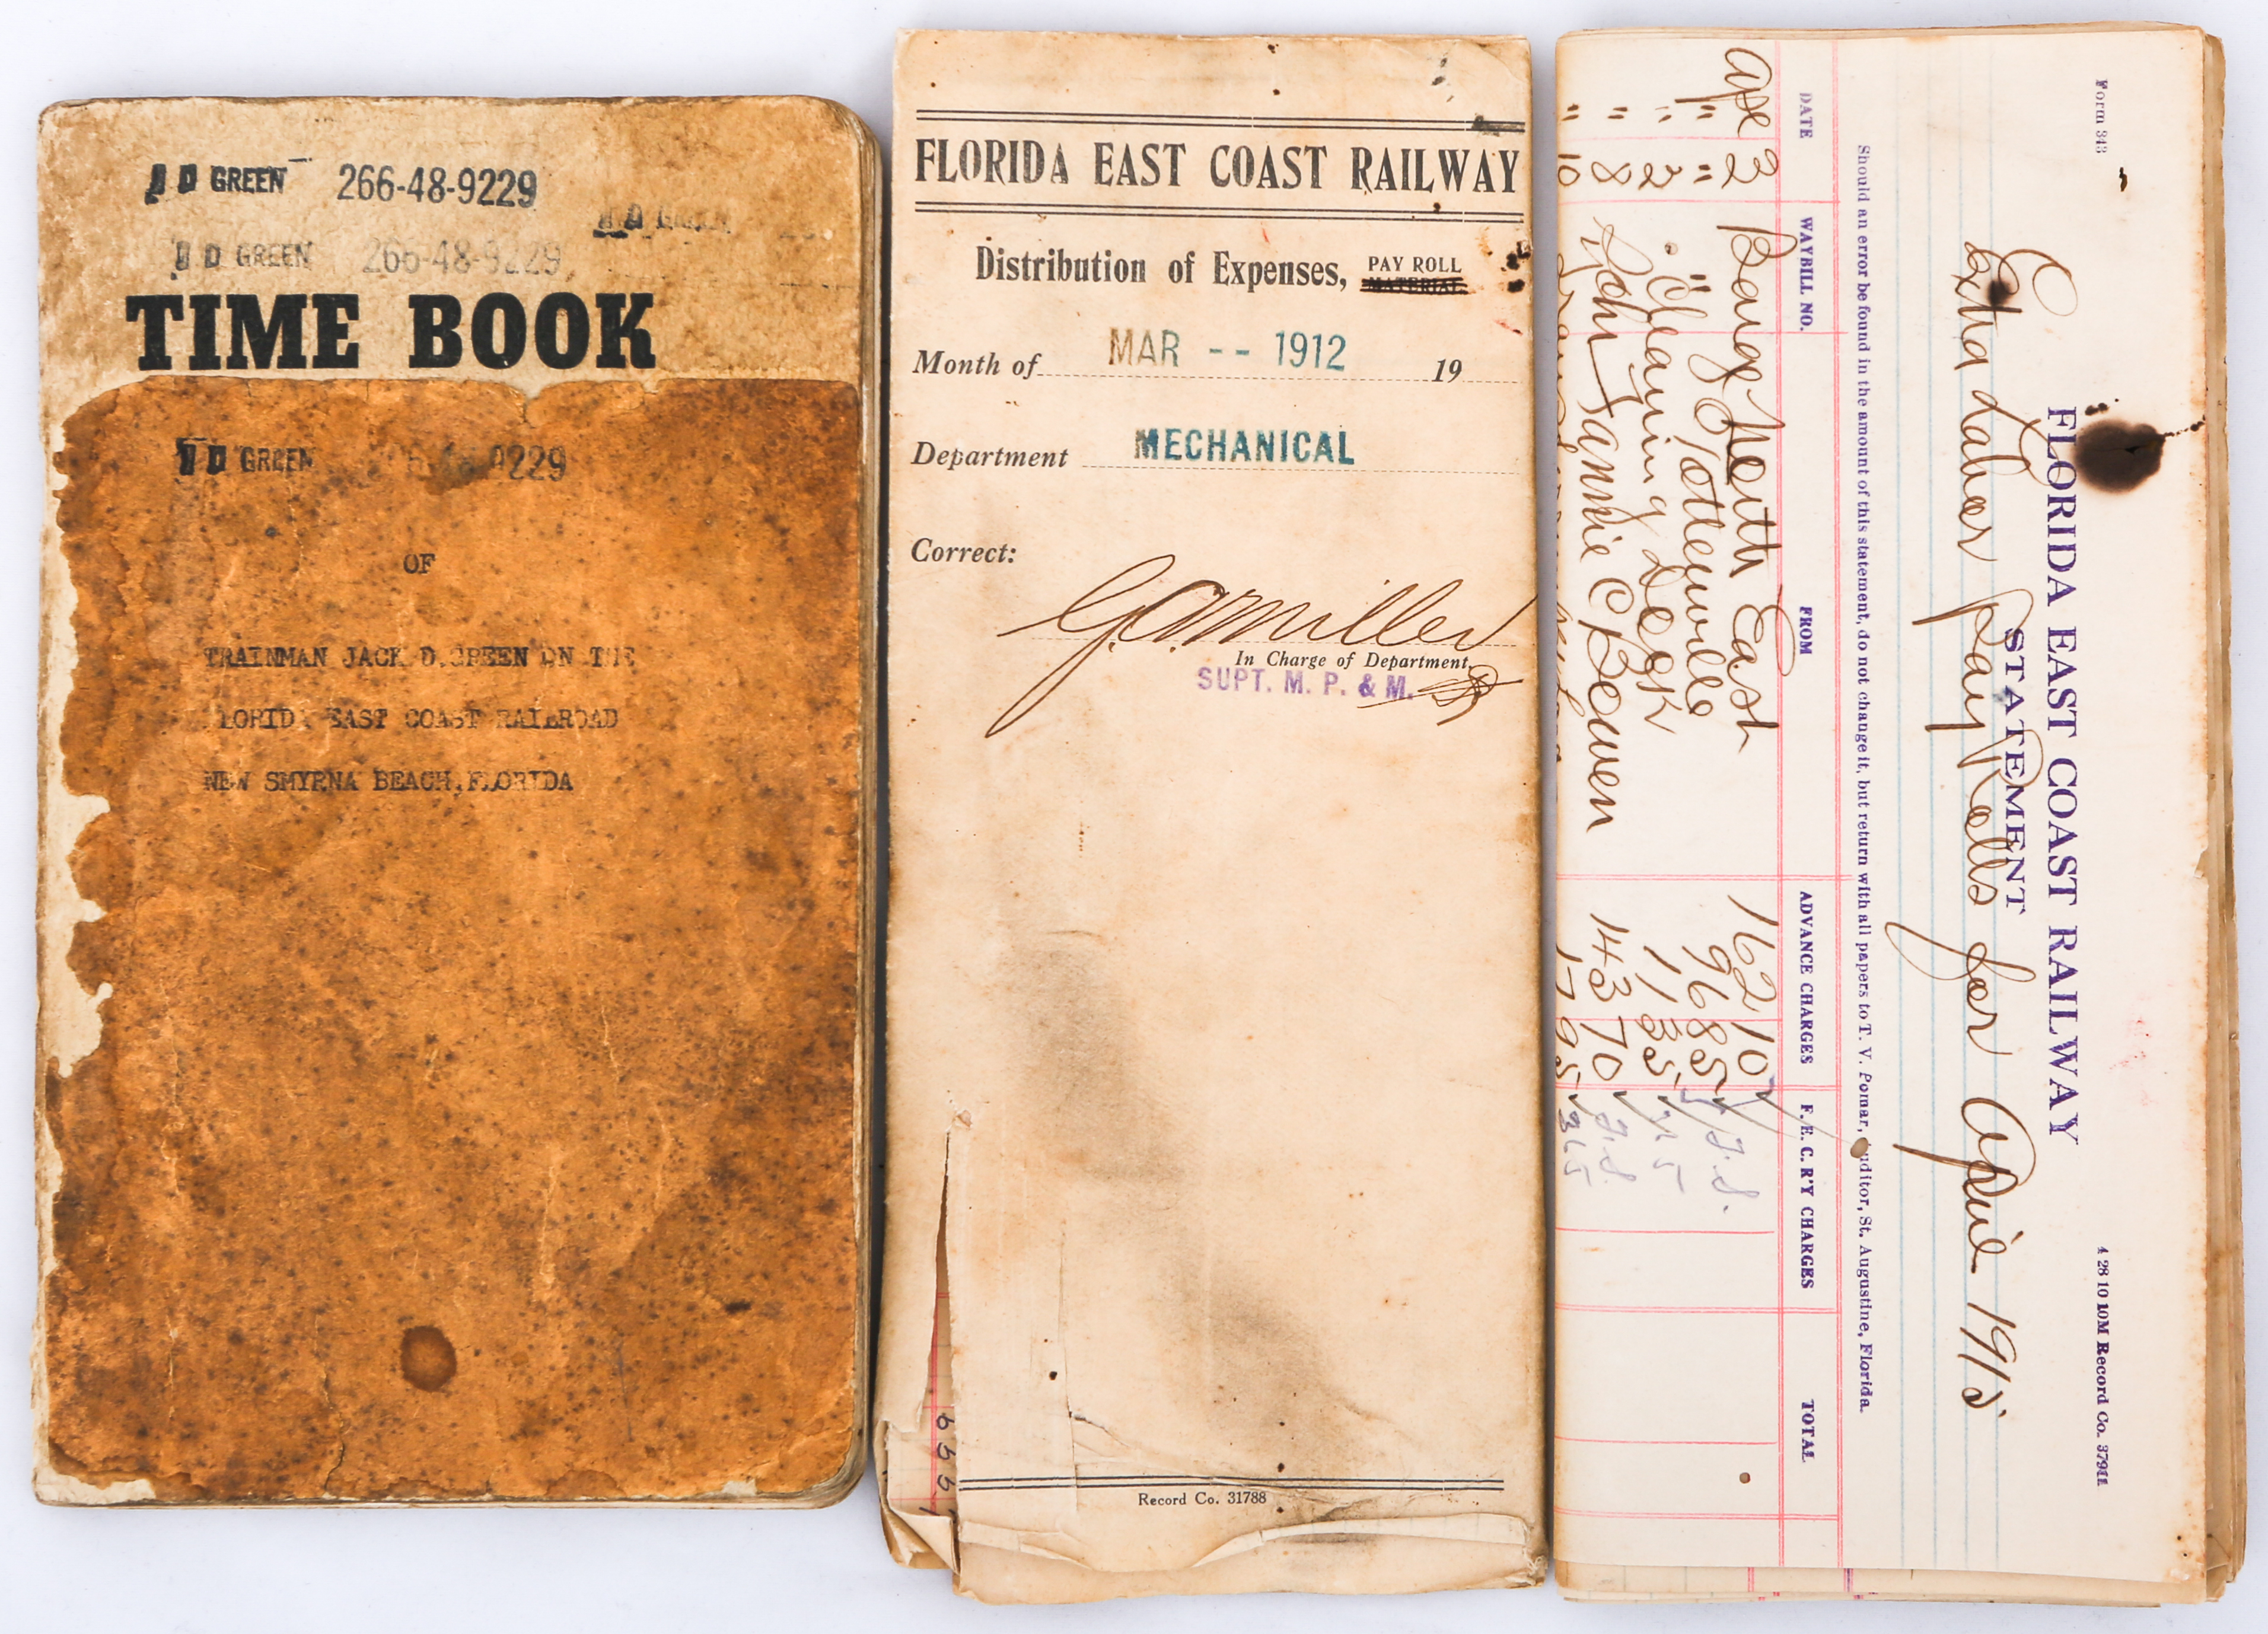 J D GREEN 266-48-9229
D GREEN
J D GREEN 266-48-9229
TIME BOOK
J D GREEN 9229
OF
TRAINMAN JACK D.GREEN ON THE
FLORIDA EAST COAST RAILROAD
NEW SMYRNA BEACH,FLORIDA
FLORIDA EAST COAST RAILWAY
Distribution of Expenses, PAY ROLL
MATERIAL
Month of MAR -- 1912 19
Department MECHANICAL
Correct:
G.A. Miller
In Charge of Department.
SUPT. M. P. & M.
Record Co. 31788
Form 343
4 28 10 10M Record Co. 37911
FLORIDA EAST COAST RAILWAY
STATEMENT
Extra Labor Pay Rolls for April 1915
Should an error be found in the amount of this statement, do not change it, but return with all papers to T. V. Pomar, Auditor, St. Augustine, Florida.
DATE WAYBILL NO. FROM ADVANCE CHARGES F. E. C. R'Y CHARGES TOTAL
Barge North East 162 10
" " " Tottenville 96 85
" 2 " Cleaning Dock 11 35
" 8 John 143 70
" 10 17 95